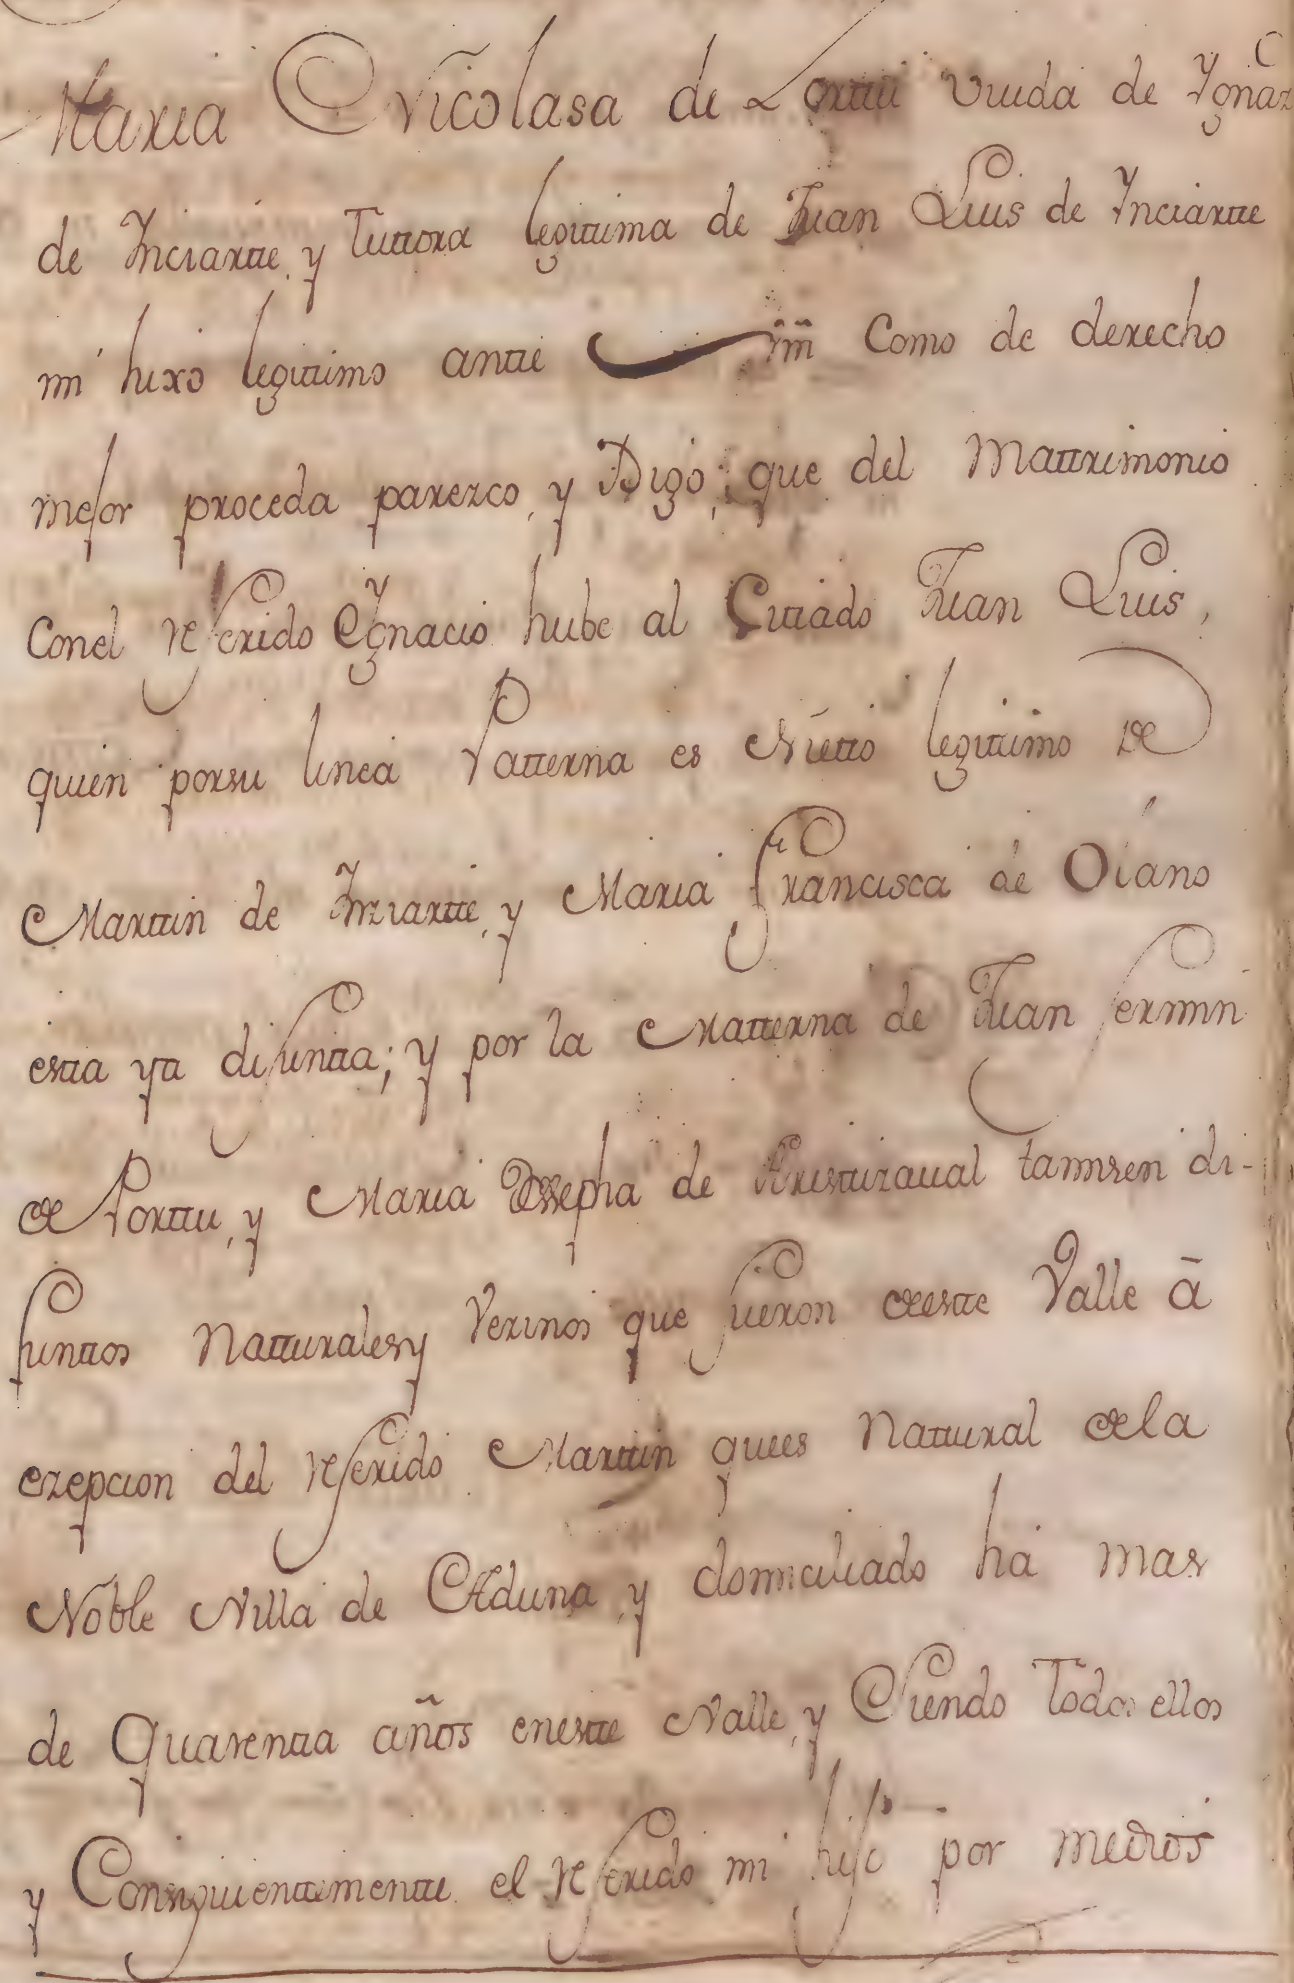 Maria Nicolasa de Porttu viuda de Ygnac
de Ynciartte, y Tuttora legittima de Juan Luis de Ynciartte
mi hixo legittimo antte Vm̃ Como de derecho
mejor proceda parezco, y Digo; que del Mattrimonio
Conel referido Ygnacio hube al Cittado Juan Luis,
quien porsu linea Patterna es Nietto legittimo de
Marttin de Ynziartte, y Maria Francisca de Oiano
estta ya difuntta; y por la Matterna de Juan fermin
de Porttu, y Maria Josepha de tamvien di-
funttos Natturales y Vezinos que fueron de estte Valle â
ezepcion del referido Marttin quees Nattural dela
Noble Villa de Aduna, y domiciliado ha mas
de Quarentta años enestte Valle, y Siendo Todos ellos
y Consiguienttementte el referido mi hijo por medios